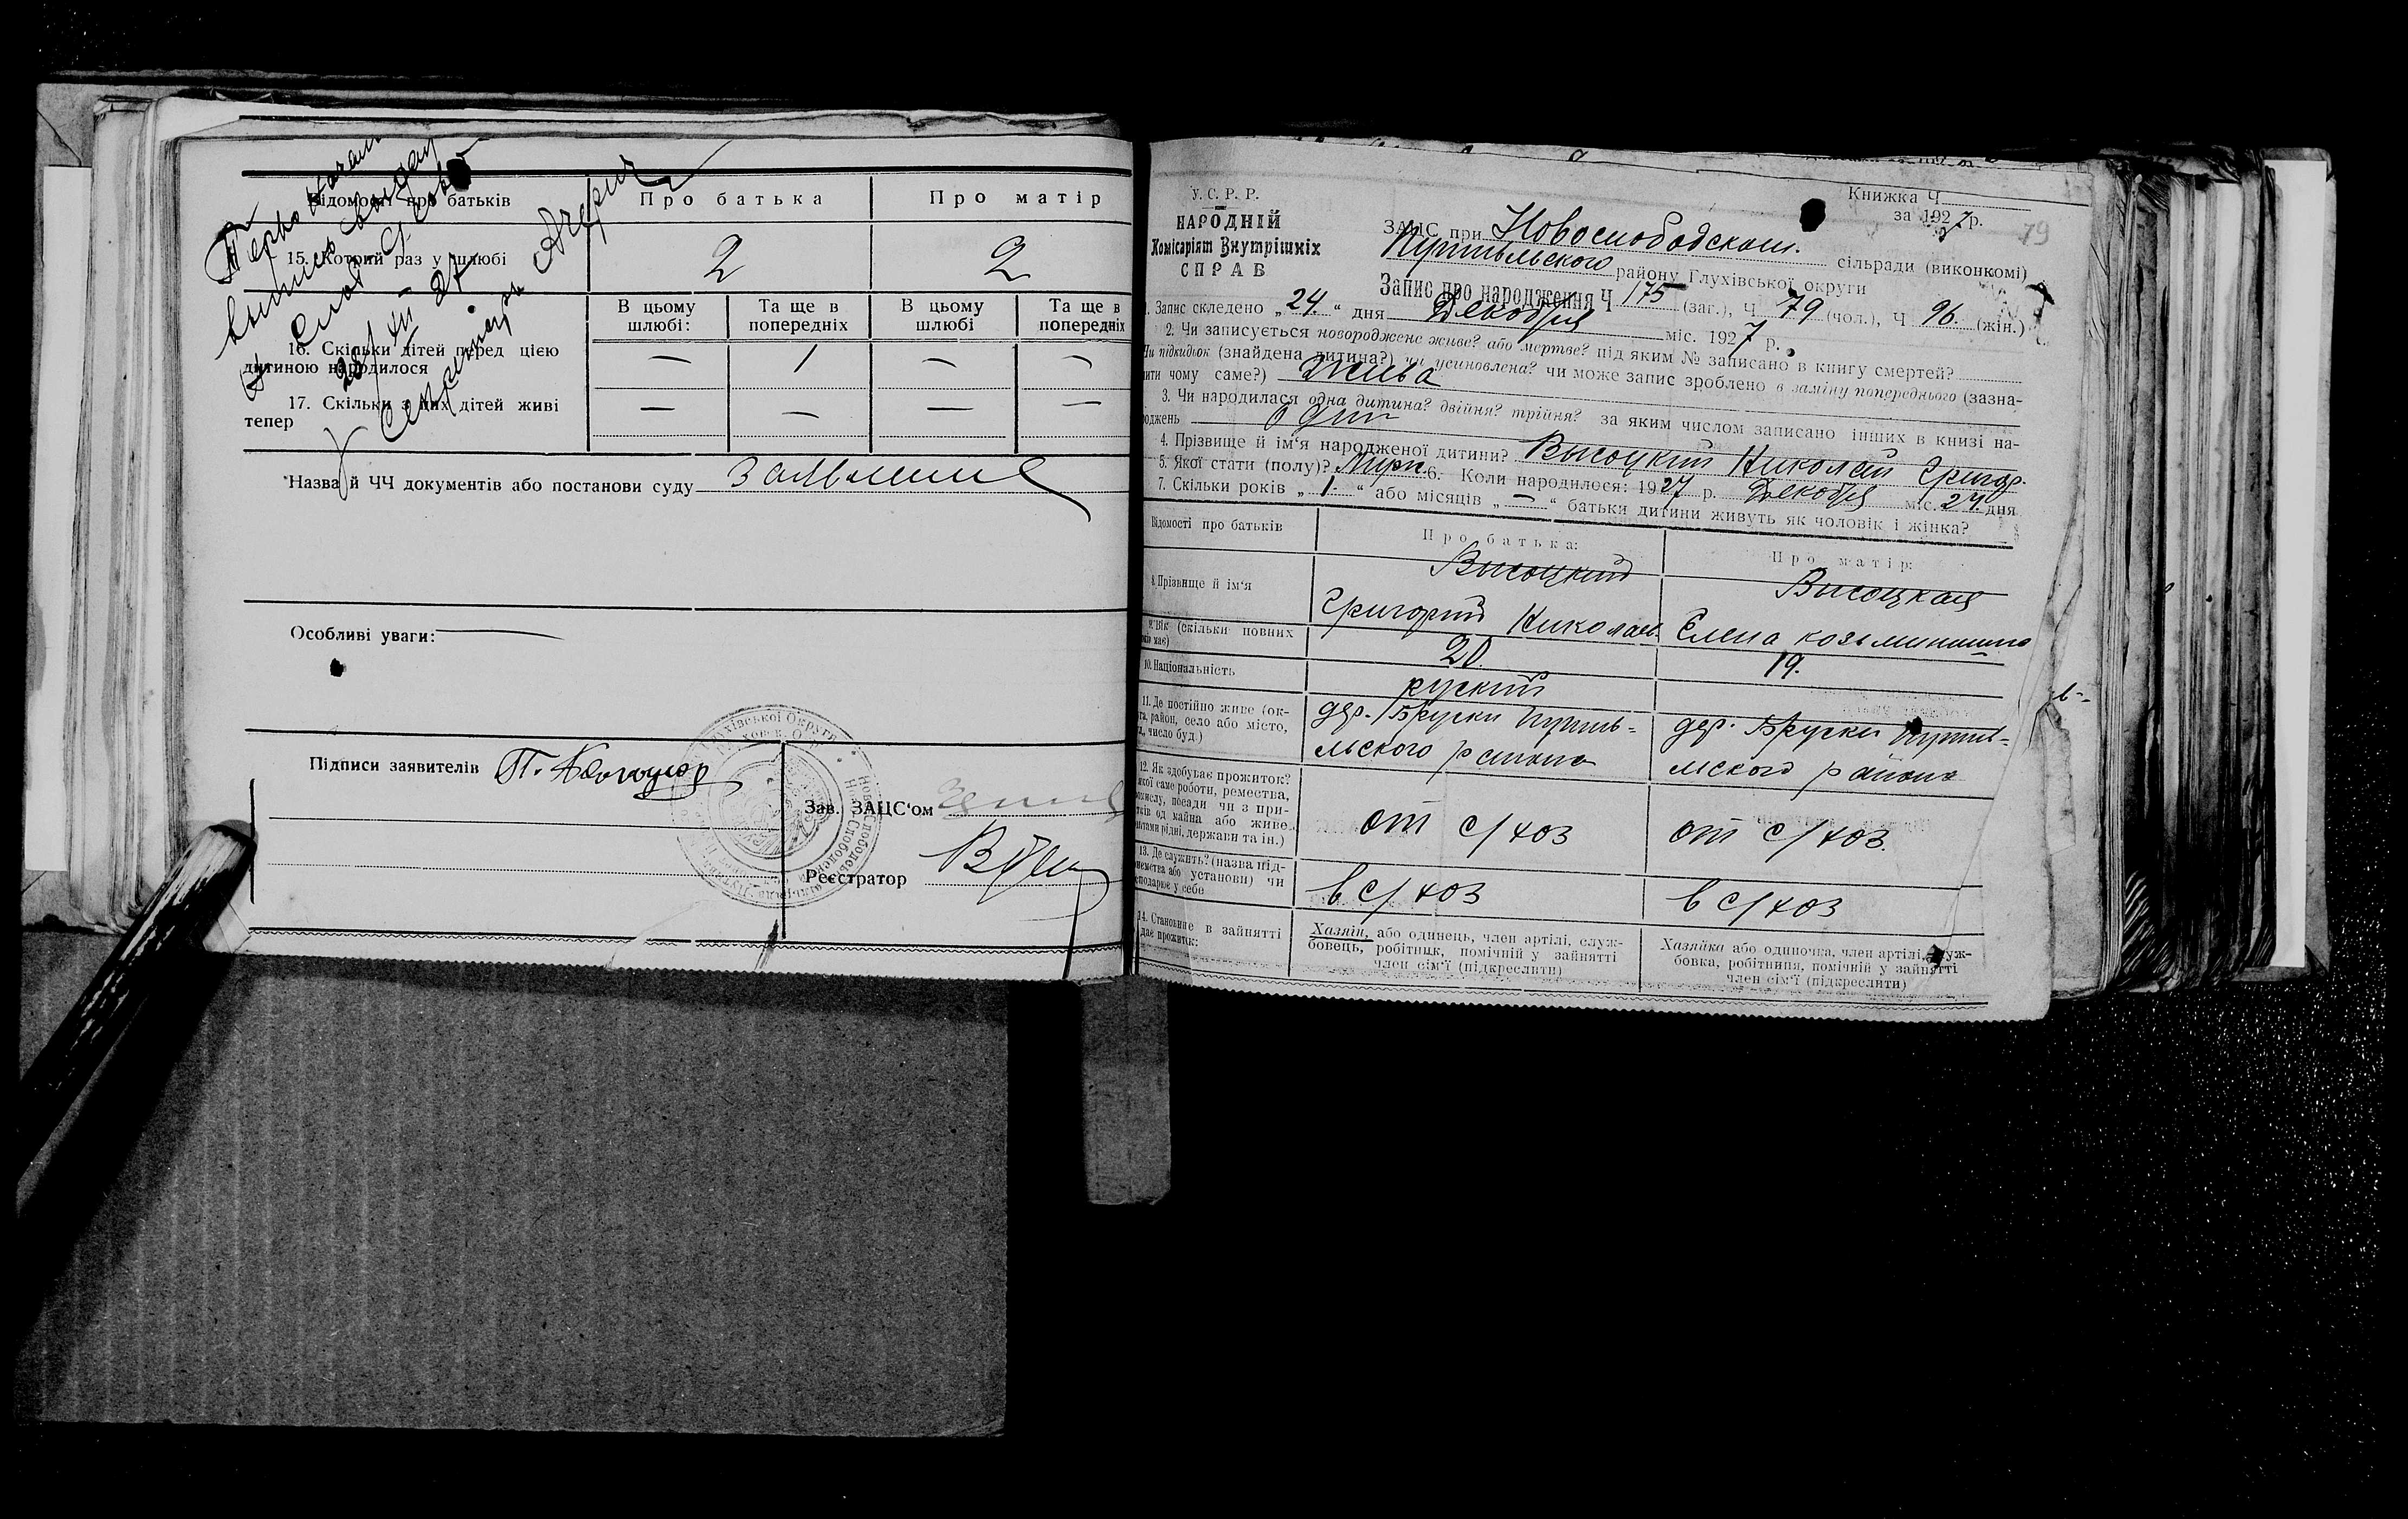 Відомості про батьків
Про батька
Про матір
15. Котрий раз у шлюбі
2
2
В цьому шлюбі:
Та ще в попередніх
В цьому шлюбі
Та ще в попередніх
16. Скільки дітей перед цією
дитиною народилося
— 1 — —
17. Скільки з них дітей живі
тепер
— — — —
Назва й ЧЧ документів або постанови суду
Особливі уваги: —
Підписи заявителів
Зав. ЗАЦС‘ом
Реєстратор
У.С.Р.Р.
НАРОДНІЙ
Комісаріят Внутрішніх
СПРАВ
Книжка Ч
за 1927 р.
79
ЗАЦС при Новослободском. сільради (виконкомі)
Путивльского району Глухівської округи
Запис про народження Ч 175 (заг.), Ч 79 (чол.), Ч 96. (жін.)
1. Запис складено „24.“ дня Декобря міс. 1927 р.
2. Чи записується новороджене живе? або мертве? під яким № записано в книгу смертей?
Чи підкидьок (знайдена дитина?) чи усиновлена? чи може запис зроблено в заміну попереднього (зазна-
чити чому саме?) Жива
3. Чи народилася одна дитина? двійня? трійня? за яким числом записано інших в книзі на-
роджень один
4. Прізвище й ім‘я народженої дитини? Высоцкий Николай Григор.
5. Якої стати (полу)? Мужс. 6. Коли народилося: 1927 р. Декобря міс. 24. дня
7. Скільки років „1.“ або місяців „—“ батьки дитини живуть як чоловік і жінка?
Відомості про батьків
Про батька:
Про матір:
8. Прізвище й ім‘я
Височкий
Григорий Николаев.
Височкая
Елена козьминишна
9. Вік (скільки повних
років має)
20.
19.
10. Національність
руский
11. Де постійно живе (ок-
руга, район, село або місто,
вул., число буд.)
дер. Бруски Путив=
льского района
дер. Бруски Путив=
льского района
12. Як здобуває прожиток?
(з якої саме роботи, ремества,
промислу, посади чи з при-
бутків од майна або живе
коштами рідні, держави та ін.)
от с/хоз
от с/хоз
13. Де служить? (назва під-
приємства або установи) чи
господарює у себе
в с/хоз
в с/хоз
14. Становище в зайнятті
що дає прожиток:
Хазяїн, або одинець, член артілі, служ-
бовець, робітник, помічній у зайнятті
член сім‘ї (підкреслити)
Хазяйка або одиночка, член артілі, служ-
бовка, робітниця, помічній у зайнятті
член сім‘ї (підкреслити)